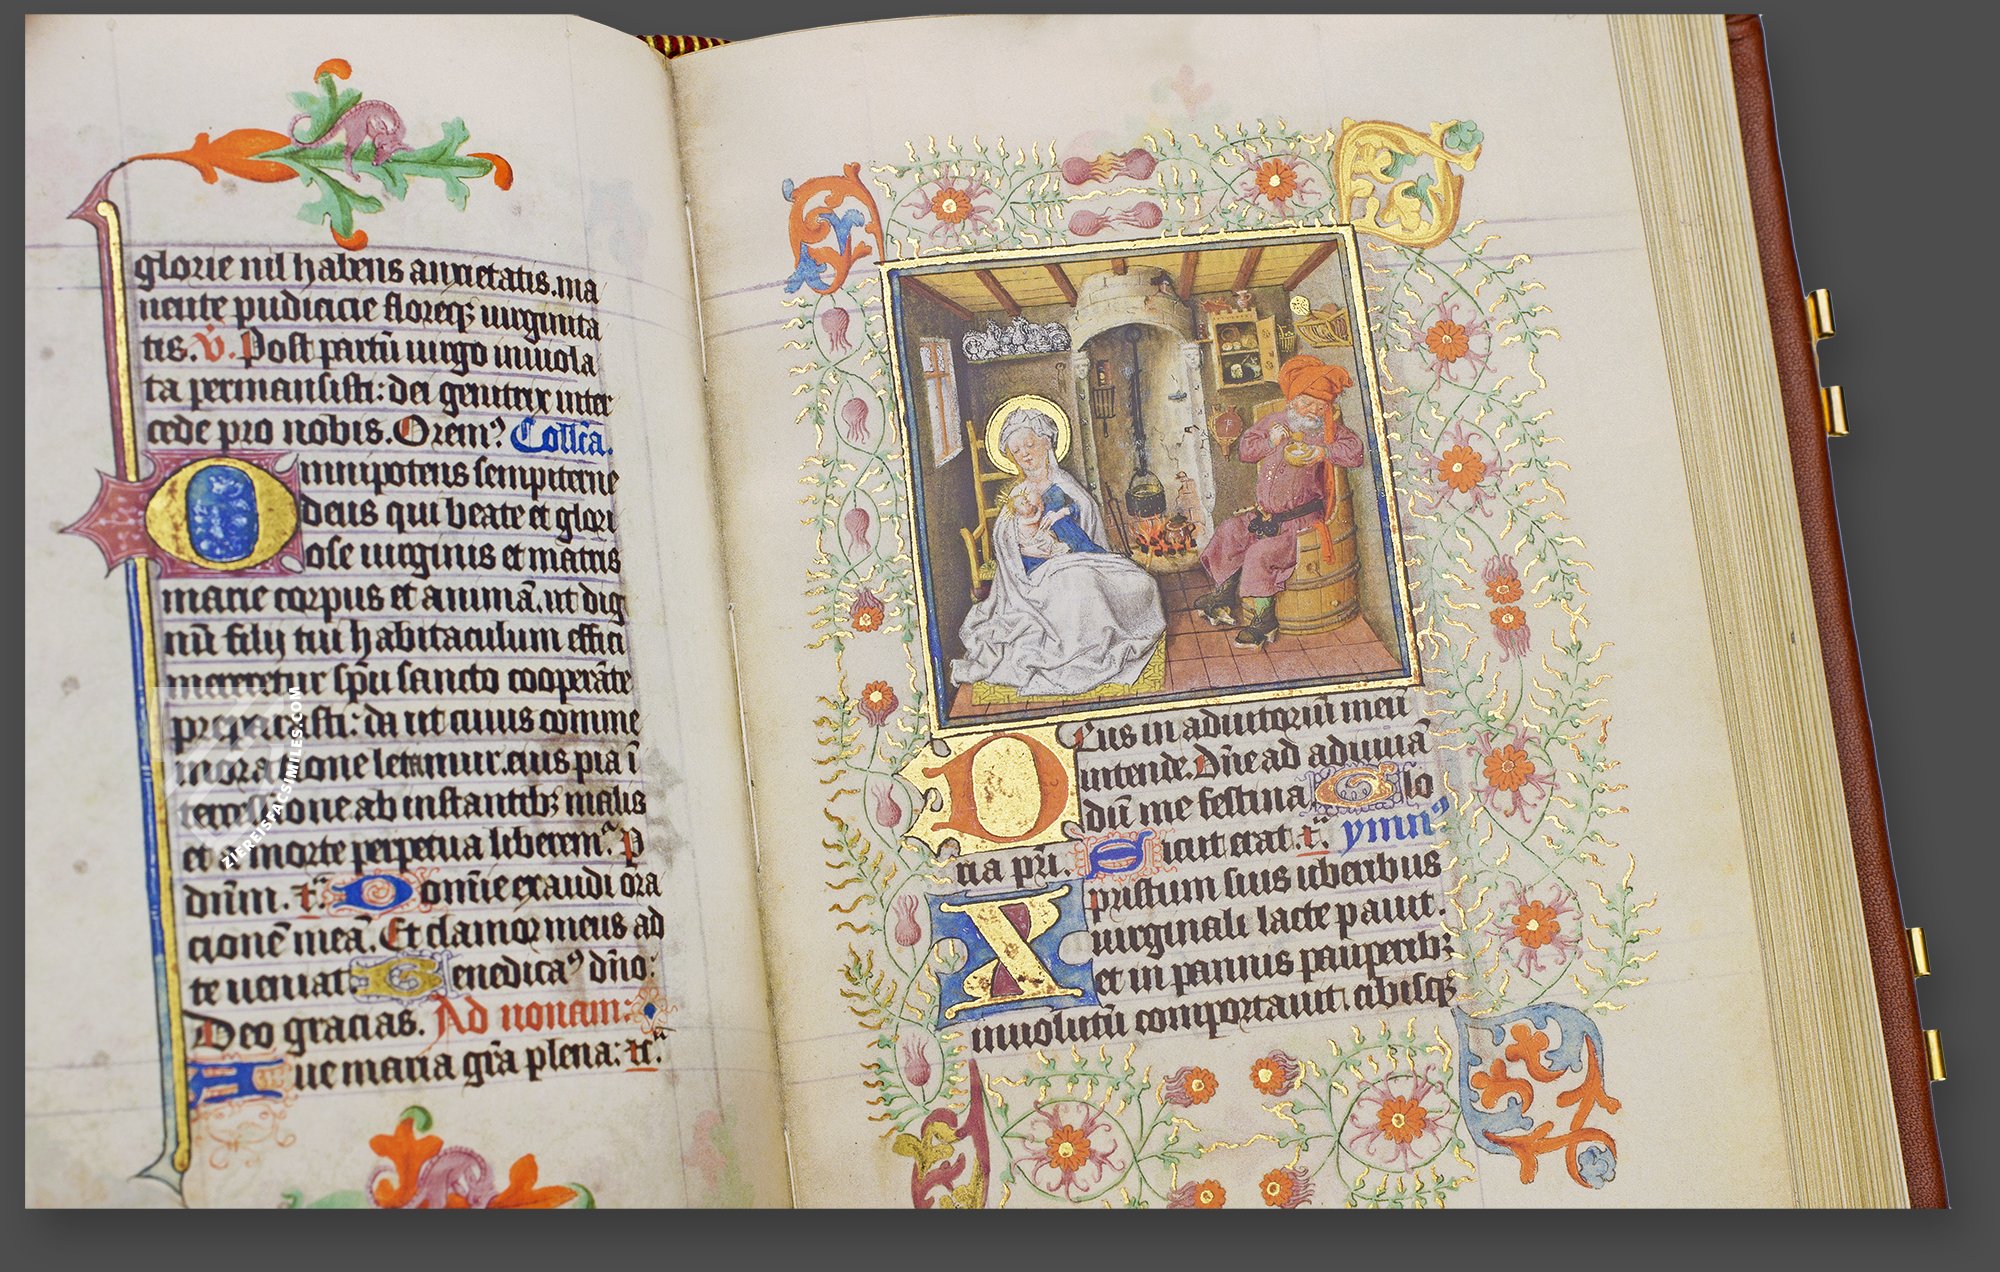 glorie nil habens anxietatis. ma
nente pudicicie floreq3 uirginita
tis. v̇. Post partū uirgo inuiola
ta permansisti: dei genitrix inter
cede pro nobis. Orem⁹ Collc̄a.
Omnipotens sempiterne
deus qui beate et glori
ose uirginis et matris
marie corpus et animā. ut dig
nū filij tui habitaculum effici
mereretur sp̄u sancto cooperāte
preparasti: da ut cuius comme
moratione letamur. eius pia ī
tercessione ab instantib3 malis
et a morte perpetua liberem². P
dn̄m. rc̄. Domīe exaudi ora
cionē meā. Et clamor meus ad
te ueniat. Benedica⁹ dn̄o:
Deo gracias. Ad nonam:
Aue maria gr̄a plena: rc̄.
Deus in adiutoriū meū
intende. Dn̄e ad adiuuā
dū me festina. Glo
ria pr̄i. Sicut erat. rc̄. ymn⁹
Xpristum suis uberibus
uirginali lacte pauit.
et in pannis pauperib3
inuolutū comportauit. cibisq3
ZIEREISFACSIMILES.COM